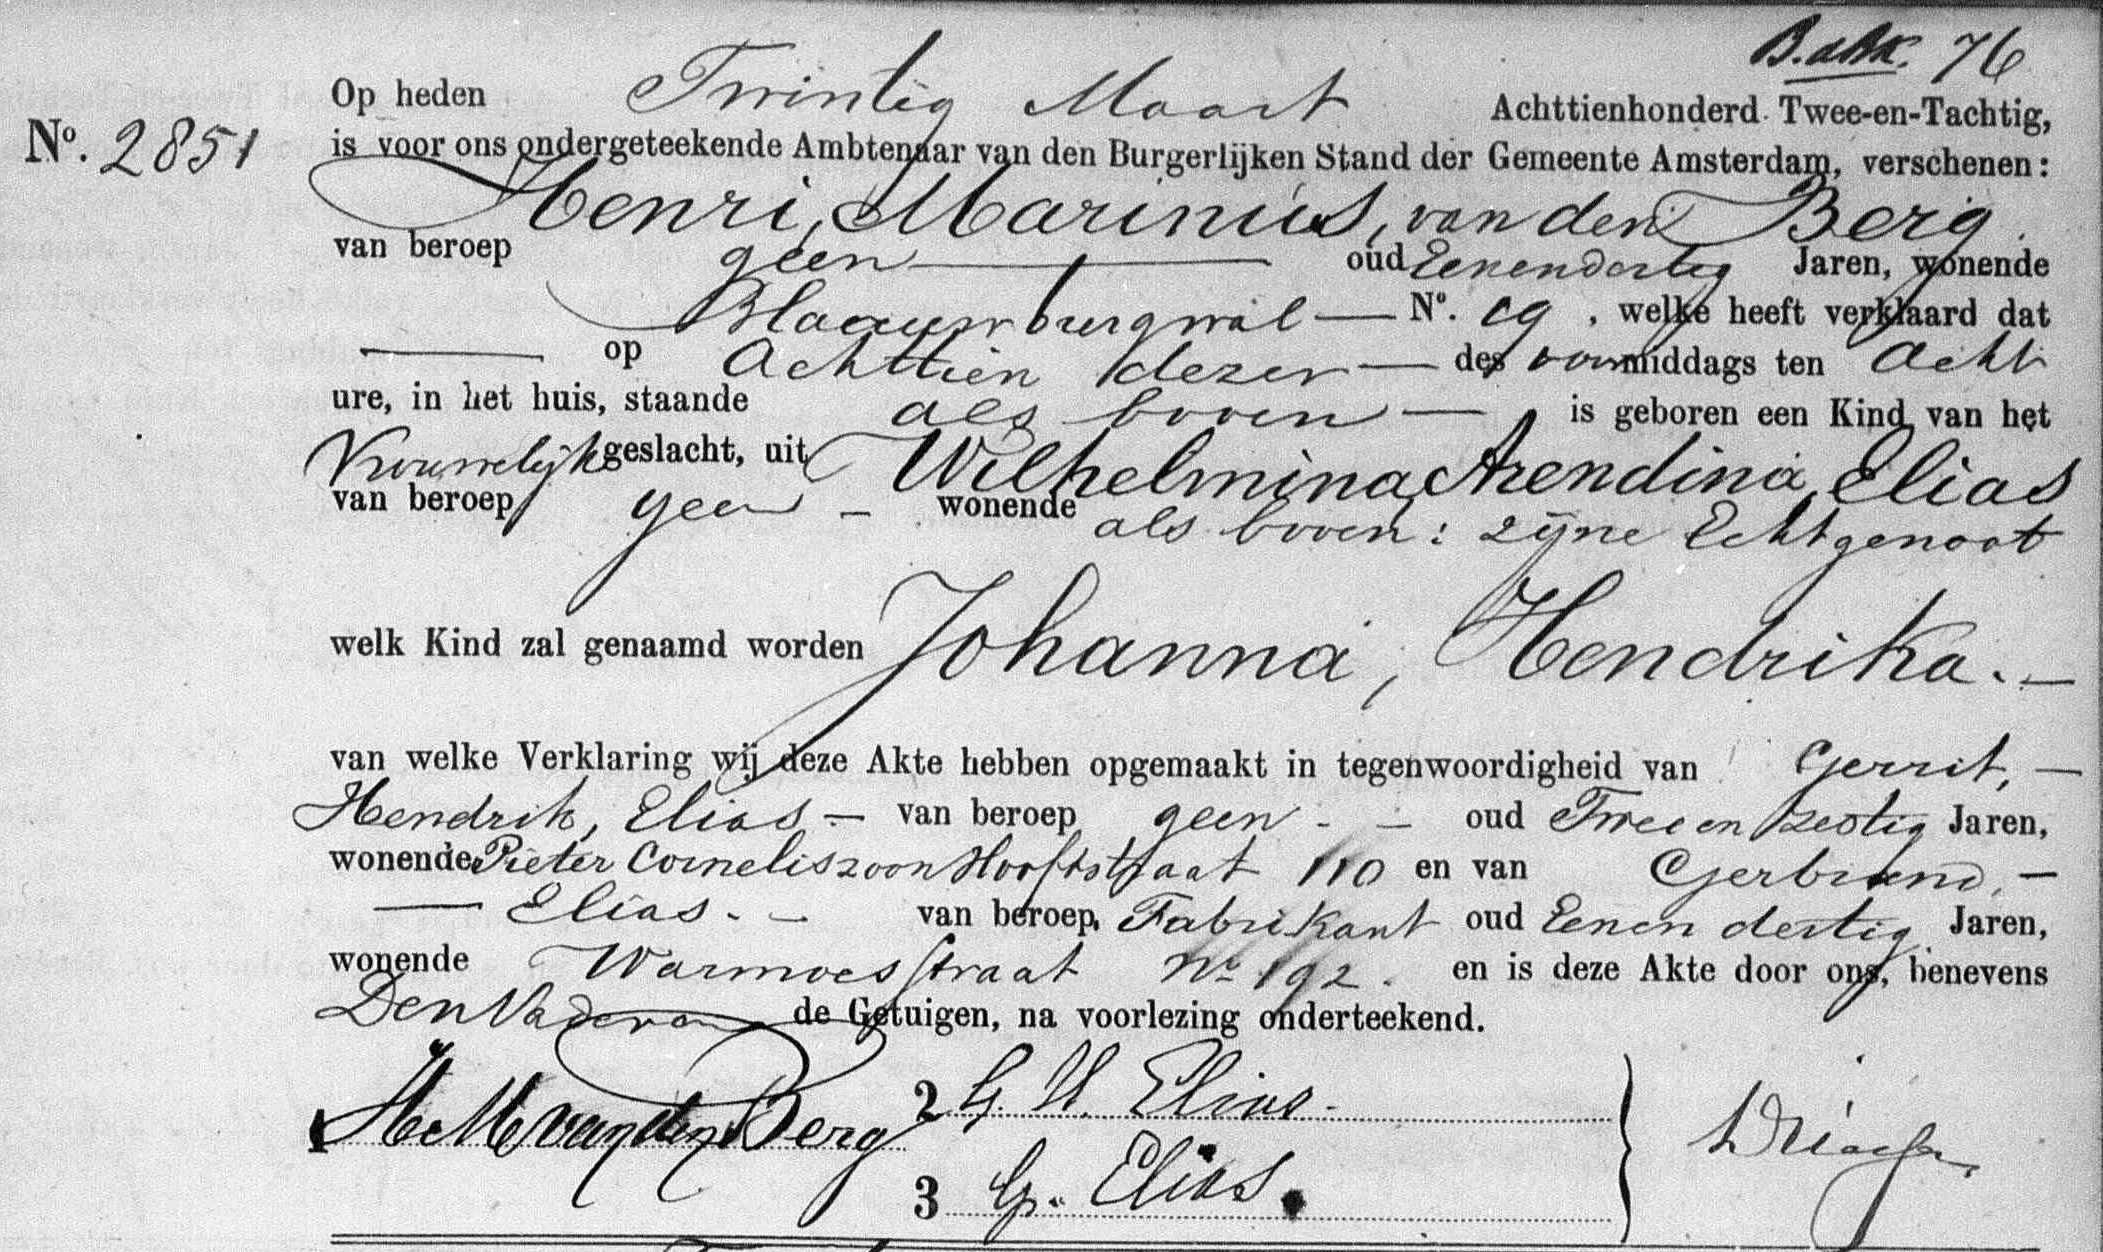 76
Op heden Twintig Maart Achttienhonderd Twee-en-Tachtig,
No. 2851 is voor ons ondergeteekende Ambtenaar van den Burgerlijken Stand der Gemeente Amsterdam, verschenen:
Henri, Marinus, van den Berg.
van beroep geen oud Eenendertig Jaren, wonende
Blaauwburgwal No. 19, welke heeft verklaard dat
op Achttien dezer des voormiddags ten Acht
ure, in het huis, staande als boven is geboren een Kind van het
Vrouwelijk geslacht, uit Wilhelmina, Arendina, Elias
van beroep geen wonende als boven: zijne Echtgenoot
welk Kind zal genaamd worden Johanna, Hendrika.
van welke Verklaring wij deze Akte hebben opgemaakt in tegenwoordigheid van Gerrit,
Hendrik, Elias van beroep geen oud Twee en zestig Jaren,
wonende Pieter Corneliszoon Hooftstraat 110 en van Gerbrand,
Elias. van beroep Fabrikant oud Eenendertig Jaren,
wonende Warmoesstraat No 192. en is deze Akte door ons, benevens
Den Vader en de Getuigen, na voorlezing onderteekend.
1 HM van den Berg
2 G. H. Elias.
3 G. Elias.